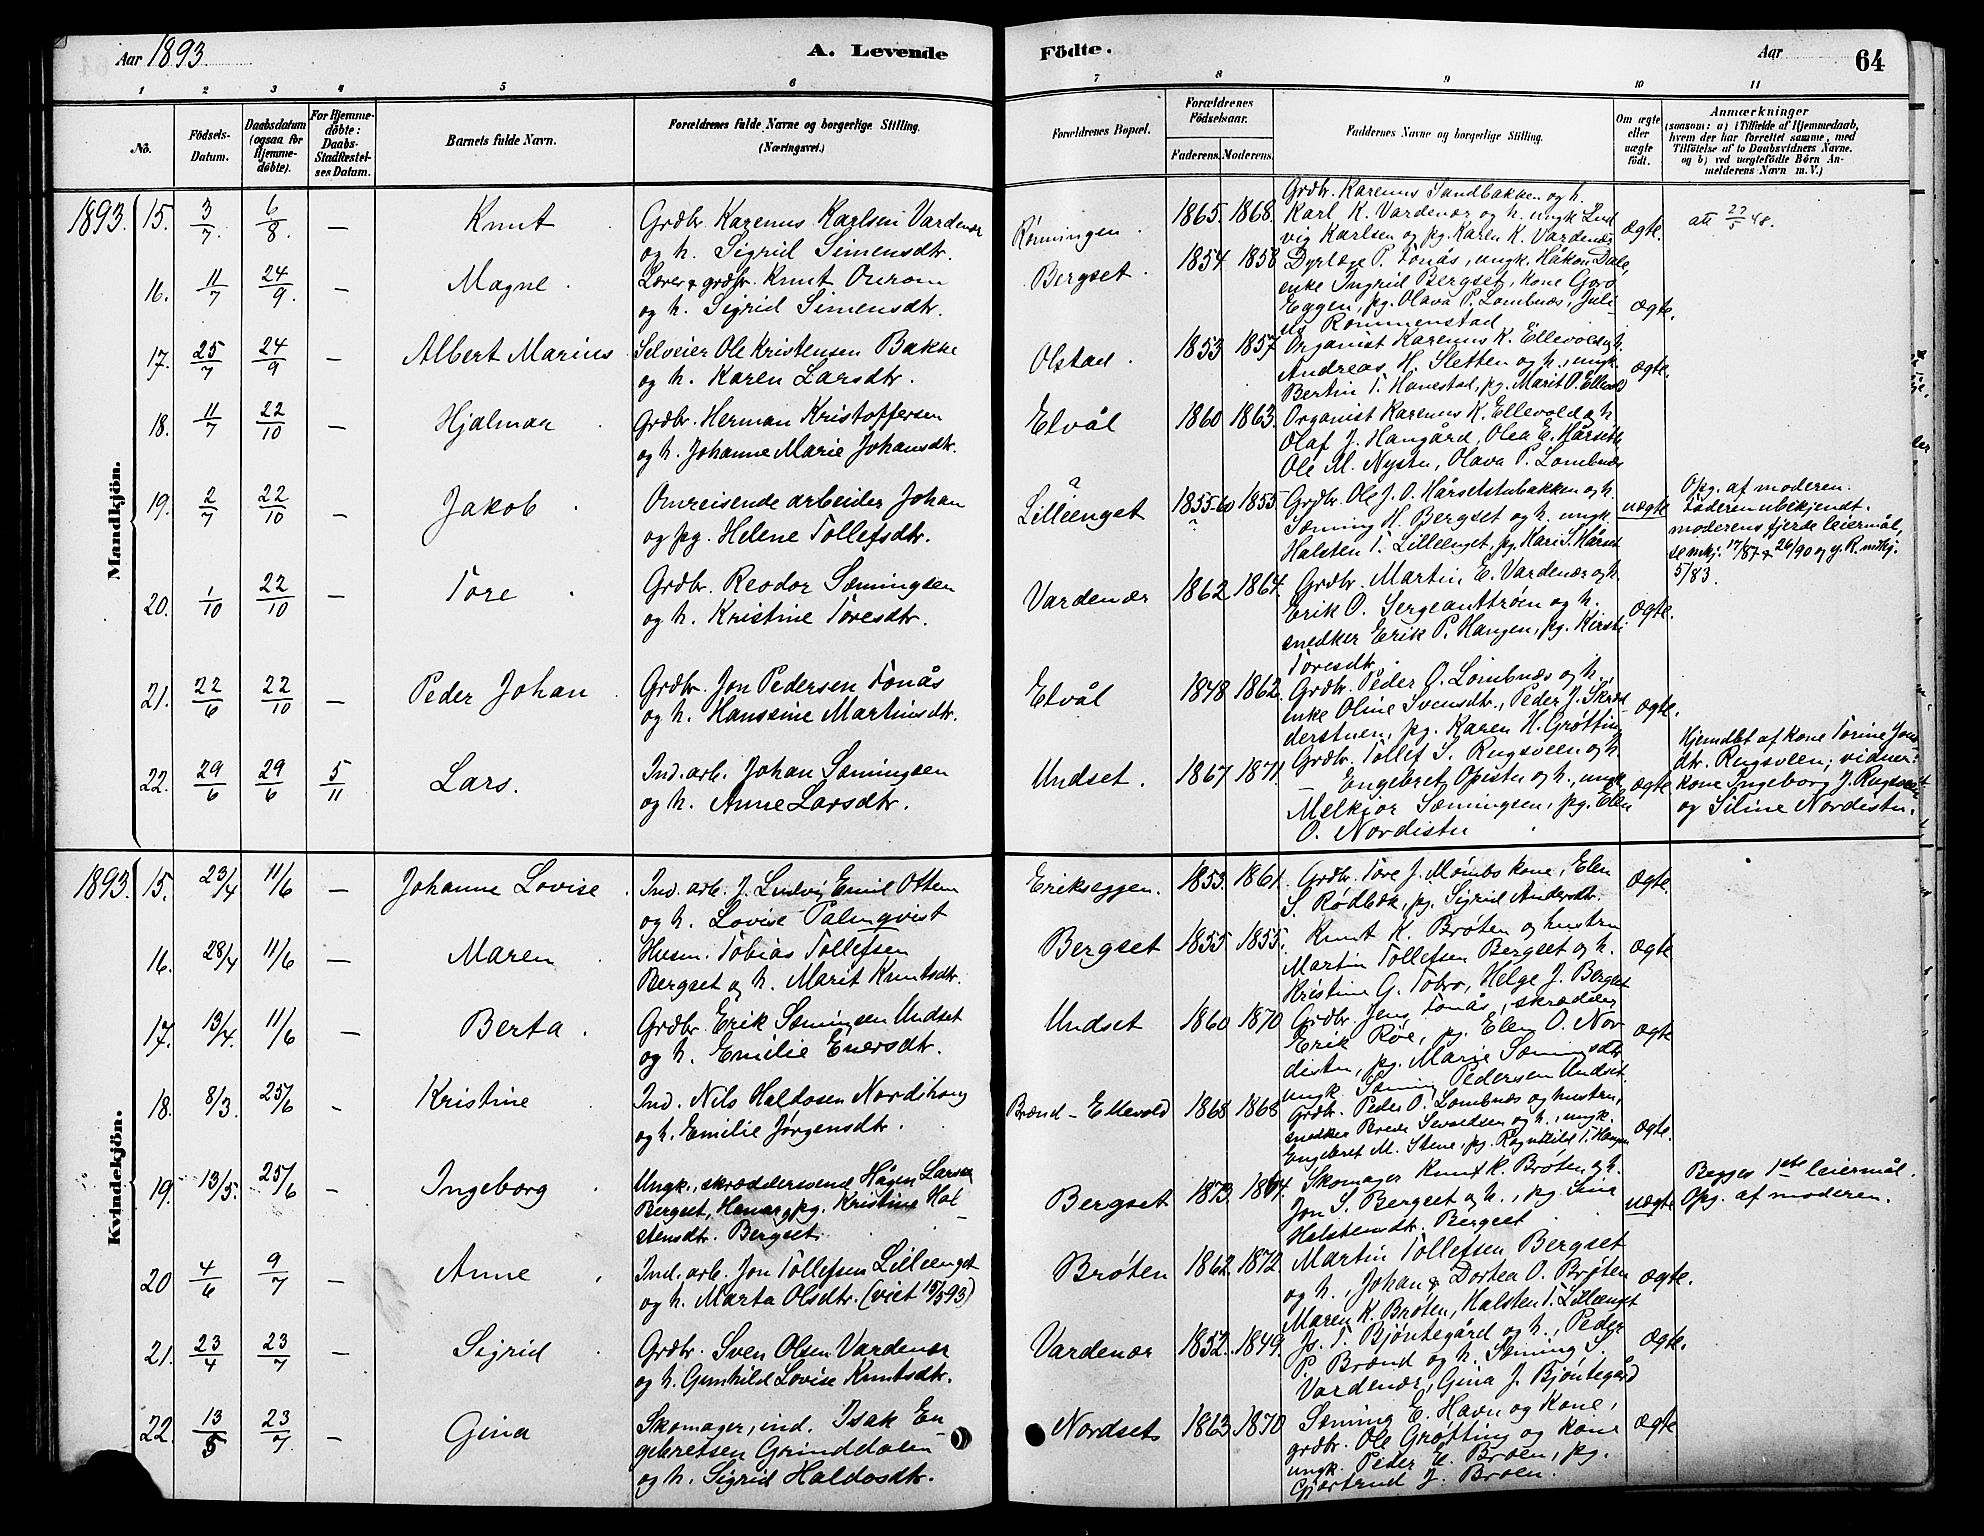 Aar 1893.
A. Levende
Födte.
Aar
64
1 2 3 4 5 6 7 8 9 10 11
No.
Födsels-
Datum.
Daabsdatum
(ogsaa for
Hjemme-
døbte).
For Hjemme-
døbte:
Daabs-
Stadfæstel-
ses Datum.
Barnets fulde Navn.
Forældrenes fulde Navne og borgerlige Stilling.
(Næringsvei.)
Forældrenes Bopæl.
Forældrenes
Födselsaar.
Faderens. Moderens.
Faddernes Navne og borgerlige Stilling.
Om ægte
eller
uægte
født.
Anmærkninger
(saasom: a) i Tilfælde af Hjemmedaab,
hvem der har forrettet samme, med
Tilföielse af to Daabsvidners Navne.
og b) ved uægtefödte Börn An-
melderens Navn m.V.)
Mandkjön.
1893. 15. 3/7 6/8. — Knut
Grdbr. Karenus Karlsen Vardenær
og h. Sigrid Simensdtr.
Rønningen. 1865. 1868.
Grdbr. Karenus Sandbakken og h.
Karl K. Vardenær og h. ungk. Lud
vig Karlsen og pg. Karen K. Vardenær
ægte.
att 27/5 48.
16. 11/7 24/9. — Magne.
Lærer & grdbr. Knut Onrom
og h. Sigrid Simensdtr.
Bergset. 1854 1858
Dyrlæge P. Tonås, ungk. Håkon Dale,
enke Ingrid Bergset, kone Goro
Eggen, pg. Olava P. Lombnæs, Juli-
us Rommenstad
ægte.
17. 25/7 24/9 — Albert Marius
Selveier Ole Kristensen Bakke
og h. Karen Larsdtr.
Olstad. 1853 1857
Organist Karenus K. Ellevold og h.
Andreas H. Sletten og h., ungk.
Bertin T. Hanestad, pg. Marit O. Ellevold
ægte.
18. 11/7 22/10 — Hjalmar
Grdbr. Herman Kristoffersen
og h. Johanne Marie Johansdtr.
Elvål 1860 1863.
Organist Karenus K. Ellevold og h.
Olaf J. Hangård, Olea E. Hårseth
Ole M. Nystu, Olava P. Lombnæs
19. 2/7 22/10 — Jakob.
Omreisende arbeider Johan
og pg. Helene Tollefsdtr.
?
Lillienget 1855-60 1855.
?
Grdbr. Ole J. O. Hårsetstubakken og h.
Sæming H. Bergset og h. ungk.
Halsten T. Lillienget, pg. Kari S. Hårset
uægte
Opg. af moderen.
Faderen ubekjendt.
moderens fjerde leiermål,
se mkj. 17/87 & 26/90 og y. R. mkj.
5/83.
20. 1/10 22/10 — Tore
Grdbr. Reodor Sæmingsen
og h. Kristine Toresdtr.
Vardenær 1862 1864.
Grdbr. Martin E. Vardenær og h.
Erik O. Sergeanttrøen og h.
snedker Erik P. Hangen, pg. Kirsti
Toresdtr.
ægte.
21. 22/6 22/10 — Peder Johan
Grdbr. Jon Pedersen Tonås
og h. Hanssine Martinsdtr.
Elvål 1848 1862.
Grdbr. Peder O. Lombnæs og h.,
enke Oline Svensdtr., Peder J. Skræd-
derstuen, pg. Karen H. Grøtting
ægte.
22. 29/6 29/6 5/11 Lars.
Ind. arb. Johan Sæmingsen
og h. Anne Larsdtr.
Undset. 1867 1871.
Grdbr. Tollef S. Rugsveen og h.
Engebret Opistu og h., ungk.
Melkior Sæmingsen, pg. Elen
O. Nordistu
ægte
Hjemdbt af kone Torine Jons-
dtr. Rugsveen; vidner:
kone Ingeborg J. Rugsveen
og Siline Nordistu.
Kvindekjön.
1893. 15. 23/4 11/6 — Johanne Lovise.
Ind. arb. J. Ludvig Emil Ottem
og h. Lovise Palmqvist
Erikseggen. 1853. 1861.
Grdbr. Tore J. Mømbs kone, Elen
S. Rødbæk, pg. Sigrid Andersdtr.
ægte.
16. 28/4 11/6 — Maren
Husm. Tobias Tollefsen
Bergset og h. Marit Knutsdtr.
Bergset 1855 1855.
Knut K. Brøten og hustru
Martin Tollefsen Bergset og h.
Kristine G. Tobro, Helge J. Bergset
ægte
17. 13/4. 11/6 — Berta.
Grdbr. Erik Sæmingsen Undset
og h. Emilie Enersdtr.
Undset 1860 1870
Grdbr. Jens Tonås, skrædder
Erik Røe, pg. Elen O. Nor
distu, pg. Marie Sæmingsdtr
ungk. Sæming Pedersen Undset.
ægte
18. 8/3. 25/6 — Kristine
Ind. Nils Haldosen Nordihaug
og h. Emilie Jørgensdtr.
Brænd-Ellevold 1868 1868
Grdbr. Peder O. Lombnæs og hustru,
snedker Brede Sevaldsen og h., ungk.
Engebret M. Stene, pg. Ragnhild T. Hangen
ægte.
19. 13/5. 25/6 — Ingeborg
Ungk., skræddersvend Hågen Larsen
Bergset, Hamar, pg. Kristine Hal-
stensdtr. Bergset.
Bergset 1873. 1864.
Skomager Knut K. Brøten og h.
Jon S. Bergset og h., pg. Sina
Halstensdtr. Bergset
uægte
Begges 1ste leiermål.
Opg. af moderen.
20 4/6 9/7 — Anne
Ind. arb. Jon Tollefsen Lillienget
og h. Marta Olsdtr. (viet 15/5 93)
Brøten 1862. 1872.
Martin Tollefsen Bergset
og h., Johan & Dortea O. Brøten
Maren K. Brøten, Halsten T. Lillienget
ægte.
21. 23/4 23/7 — Sigrid
Grdbr. Sven Olsen Vardenær
og h. Gunhild Lovise Knutsdtr.
Vardenær 1852. 1849.
Js. T. Bjøntegård og h., Peder
P. Brænd og h. Sæming S.
Vardenær, Gina J. Bjøntegård
ægte.
22. 13/5 23/7 — Gina
Skomager, ind. Isak En-
gebretsen Grinddalen
og h. Sigrid Haldosdtr.
Nordset 1863 1870
Sæming E. Havn og Kone,
grdbr. Ole Grøtting og kone
ungk. Peder E. Broen, pg.
Gjertrud J. Broen.
ægte